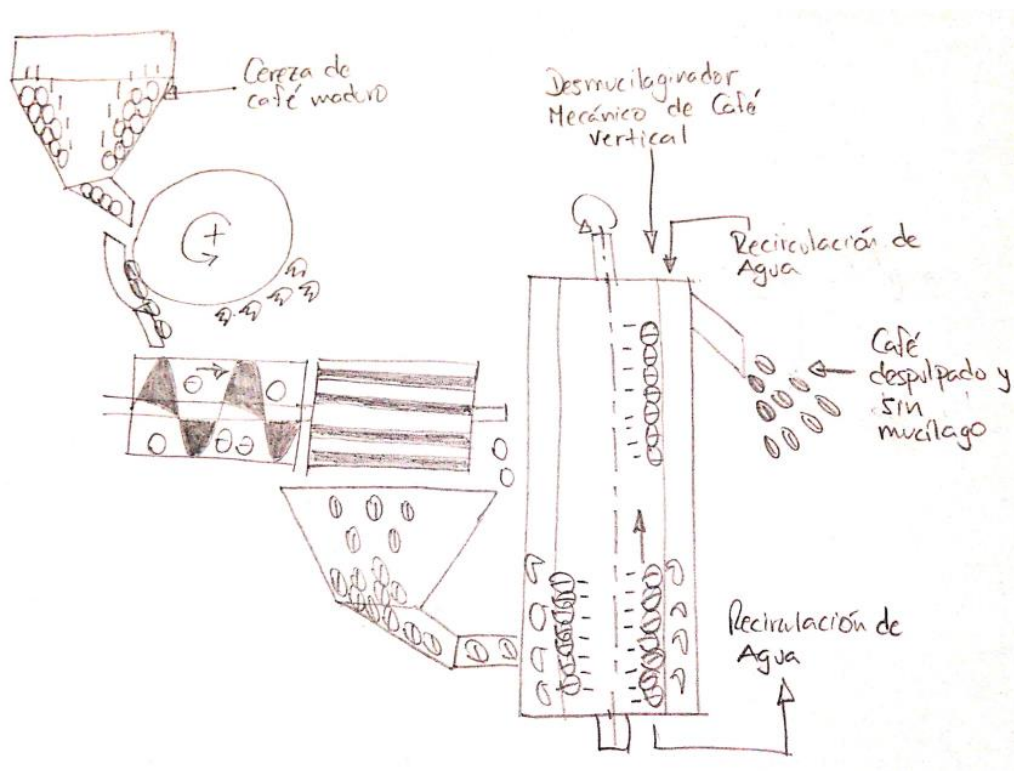 Cereza de
café maduro
Desmucilaginador
Mecánico de Café
vertical
Recirculación de
Agua
Café
despulpado y
sin
mucílago
Recirculación de
Agua